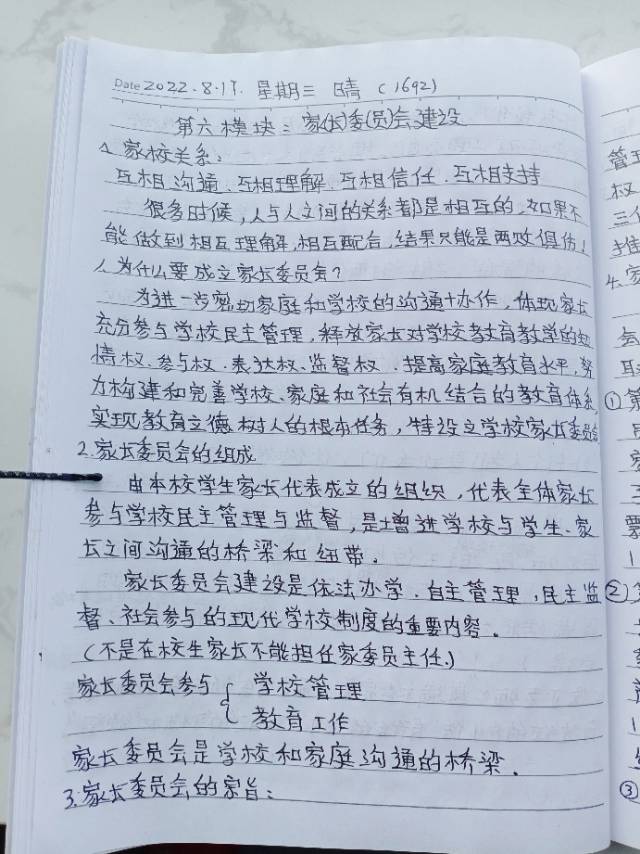 Date 2022.8.17. 星期三 晴 (1692)
第六模块：家(长)委(员)会建设
1. 家校关系：
互相沟通、互相理解、互相信任、互相支持
很多时候，人与人之间的关系都是相互的，如果不
能做到相互理解，相互配合，结果只能是两败俱伤！
1.为什么要成立家长委员会？
为进一步密切家庭和学校的沟通+协作，体现家长
充分参与学校民主管理，释放家长对学校教育教学的知
情权、参与权、表达权、监督权，提高家庭教育水平，努
力构建和完善学校、家庭和社会有机结合的教育体系，
实现教育立德树人的根本任务，特设立学校家长委员会
2.家长委员会的组成
由本校学生家长代表成立的组织，代表全体家长
参与学校民主管理与监督，是增进学校与学生、家
长之间沟通的桥梁和纽带。
家长委员会建设是依法办学、自主管理，民主监
督、社会参与的现代学校制度的重要内容。
(不是在校生家长不能担任家委员主任.)
家长委员会参与{学校管理
教育工作
家长委员会是学校和家庭沟通的桥梁.
3.家长委员会的宗旨：
管理
权
三
推
4.家
会
①第
②
③